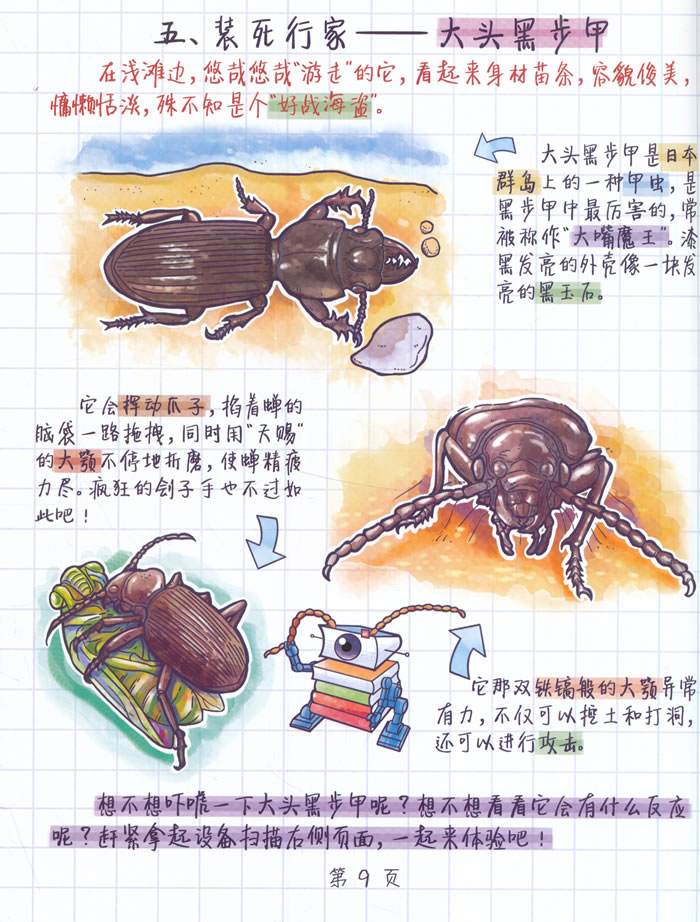 五、装死行家——大头黑步甲
在浅滩边，悠哉悠哉“游走”的它，看起来身材苗条，容貌俊美，
慵懒恬淡，殊不知是个“好战海盗”。
大头黑步甲是日本
群岛上的一种甲虫，是
黑步甲中最厉害的，常
被称作“大嘴魔王”。漆
黑发亮的外壳像一块发
亮的黑玉石。
它会挥动爪子，掐着蝉的
脑袋一路拖拽，同时用“天赐”
的大颚不停地折磨，使蝉精疲
力尽。疯狂的刽子手也不过如
此吧！
它那双铁镐般的大颚异常
有力，不仅可以挖土和打洞，
还可以进行攻击。
想不想吓唬一下大头黑步甲呢？想不想看看它会有什么反应
呢？赶紧拿起设备扫描右侧页面，一起来体验吧！
第9页